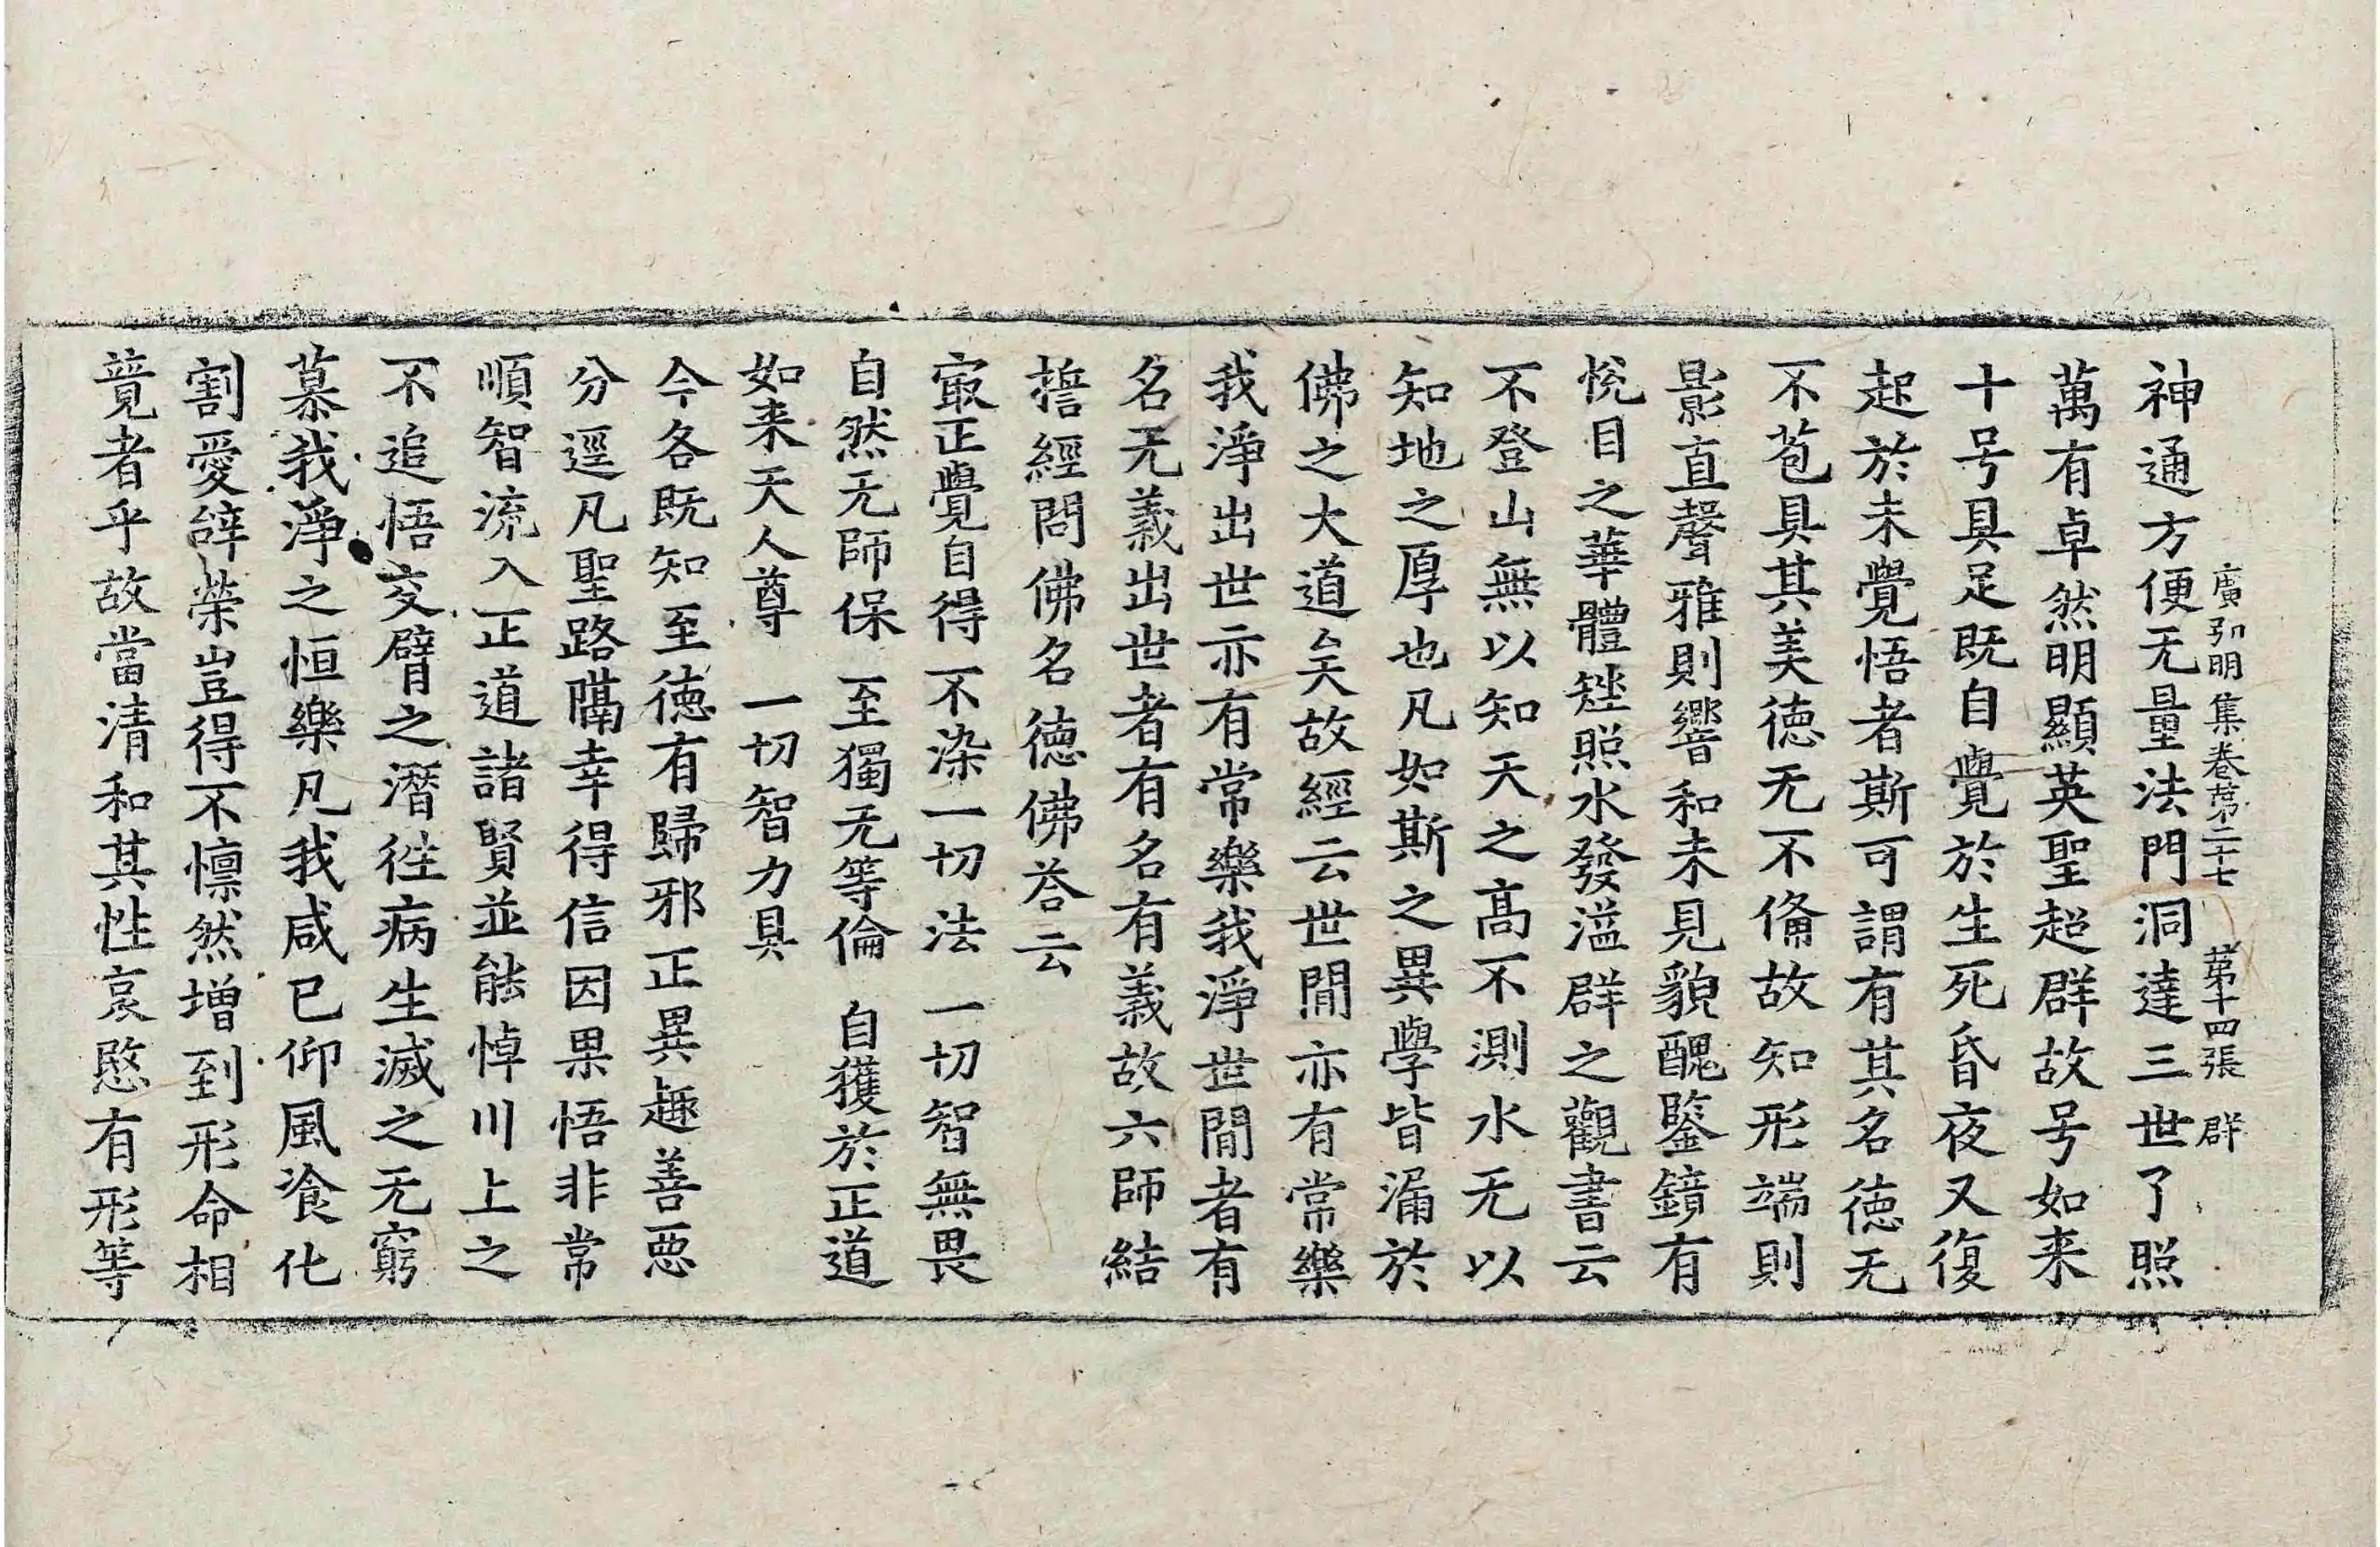 廣弘明集卷第二十七　第十四張　群
神通方便无量法門洞達三世了照
萬有卓然明顯英聖超群故号如来
十号具足既自覺於生死昏夜又復
起於未覺悟者斯可謂有其名徳无
不苞具其美徳无不俻故知形端則
影直聲雅則響和未見貌醜鑒鏡有
恱目之華體矬照水發溢群之觀書云
不登山無以知天之髙不測水无以
知地之厚也凡如斯之異學皆漏於
佛之大道矣故經云世間亦有常樂
我淨出世亦有常樂我淨世間者有
名无義出世者有名有義故六師結
誓經問佛名德佛荅云
冣正覺自得　不染一切法　一切智無畏
自然无師保　至獨无等倫　自獲於正道
如来天人尊　一切智力具
今各既知至徳有歸邪正異趣善悪
分逕凡聖路隔幸得信因果悟非常
順智流入正道諸賢並能悼川上之
不追悟交臂之潛徃病生滅之无窮
慕我淨之恒樂凡我咸已仰風飡化
割愛辞榮豈得不懔然增到形命相
競者乎故當清和其性哀愍有形等